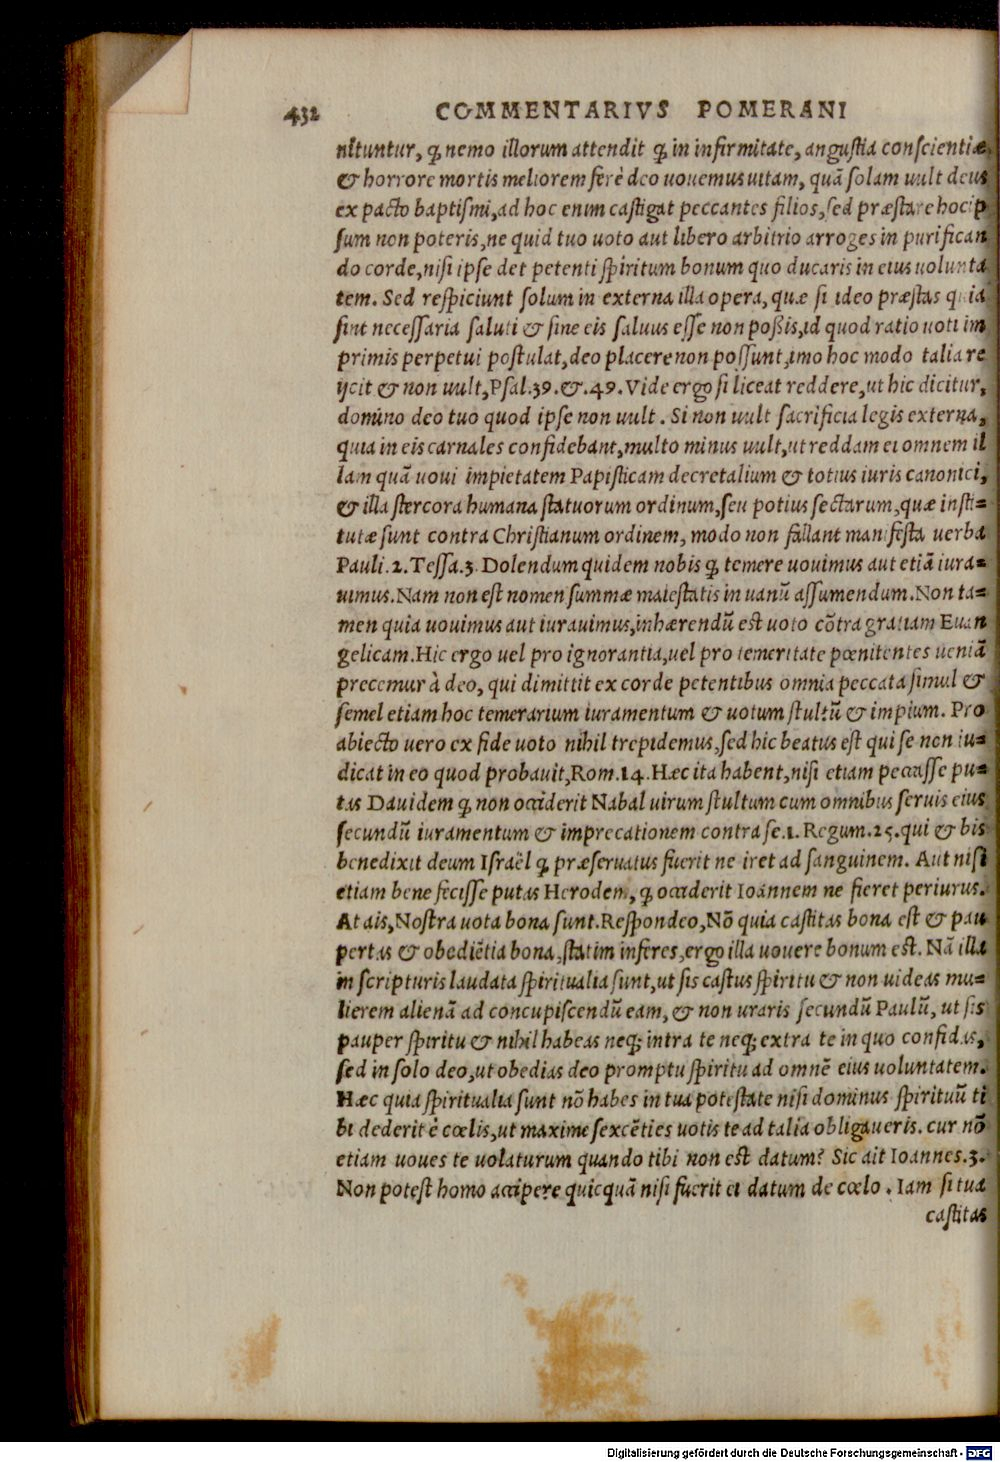 432 COMMENTARIVS POMERANI
nituntur, ꝙ nemo illorum attendit ꝙ in infirmitate, angustia conscientiæ,
& horrore mortis meliorem ferè deo uouemus uitam, quā solam uult deus
ex pacto baptismi, ad hoc enim castigat peccantes filios, sed præstare hoc ip
sum non poteris, ne quid tuo uoto aut libero arbitrio arroges in purifican
do corde, nisi ipse det petenti spiritum bonum quo ducaris in eius uolunta
tem. Sed respiciunt solum in externa illa opera, quæ si ideo præstas quia
sint necessaria saluti & sine eis saluus esse non poßis, id quod ratio uoti im
primis perpetui postulat, deo placere non possunt, imo hoc modo talia re
ijcit & non uult, Psal.39.&.49. Vide ergo si liceat reddere, ut hic dicitur,
domino deo tuo quod ipse non uult. Si non uult sacrificia legis externa,
quia in eis carnales confidebant, multo minus uult, ut reddam ei omnem il
lam quā uoui impietatem Papisticam decretalium & totius iuris canonici,
& illa stercora humana statuorum ordinum, seu potius sectarum, quæ insti=
tutæ sunt contra Christianum ordinem, modo non fallant manifesta uerba
Pauli.2.Tessa.3. Dolendum quidem nobis ꝙ temere uouimus aut etiā iura=
uimus. Nam non est nomen summæ maiestatis in uanū assumendum. Non ta=
men quia uouimus aut iurauimus, inhærendū est uoto cōtra gratiam Euan
gelicam. Hic ergo uel pro ignorantia, uel pro temeritate pœnitentes ueniā
precemur à deo, qui dimittit ex corde petentibus omnia peccata simul &
semel etiam hoc temerarium iuramentum & uotum stultū & impium. Pro
abiecto uero ex fide uoto nihil trepidemus, sed hic beatus est qui se non iu=
dicat in eo quod probauit, Rom.14. Hæc ita habent, nisi etiam peccasse pu=
tas Dauidem ꝙ non occiderit Nabal uirum stultum cum omnibus seruis eius
secundū iuramentum & imprecationem contra se.1. Regum.25. qui & bis
benedixit deum Israël ꝙ præseruatus fuerit ne iret ad sanguinem. Aut nisi
etiam bene fecisse putas Herodem, ꝙ occiderit Ioannem ne fieret periurus.
At ais, Nostra uota bona sunt. Respondeo, Nō quia castitas bona est & pau
pertas & obediētia bona, statim inferes, ergo illa uouere bonum est. Nā illa
in scripturis laudata spiritualia sunt, ut sis castus spiritu & non uideas mu=
lierem alienā ad concupiscendū eam, & non uraris secundū Paulū, ut sis
pauper spiritu & nihil habeas neq; intra te neq; extra te in quo confidas,
sed in solo deo, ut obedias deo promptu spiritu ad omnē eius uoluntatem.
Hæc quia spiritualia sunt nō habes in tua potestate nisi dominus spirituū ti
bi dederit è cœlis, ut maxime sexcēties uotis te ad talia obligaueris. cur nō
etiam uoues te uolaturum quando tibi non est datum? Sic ait Ioannes.3.
Non potest homo accipere quicquā nisi fuerit ei datum de cœlo. Iam si tua
castitas
Digitalisierung gefördert durch die Deutsche Forschungsgemeinschaft - DFG